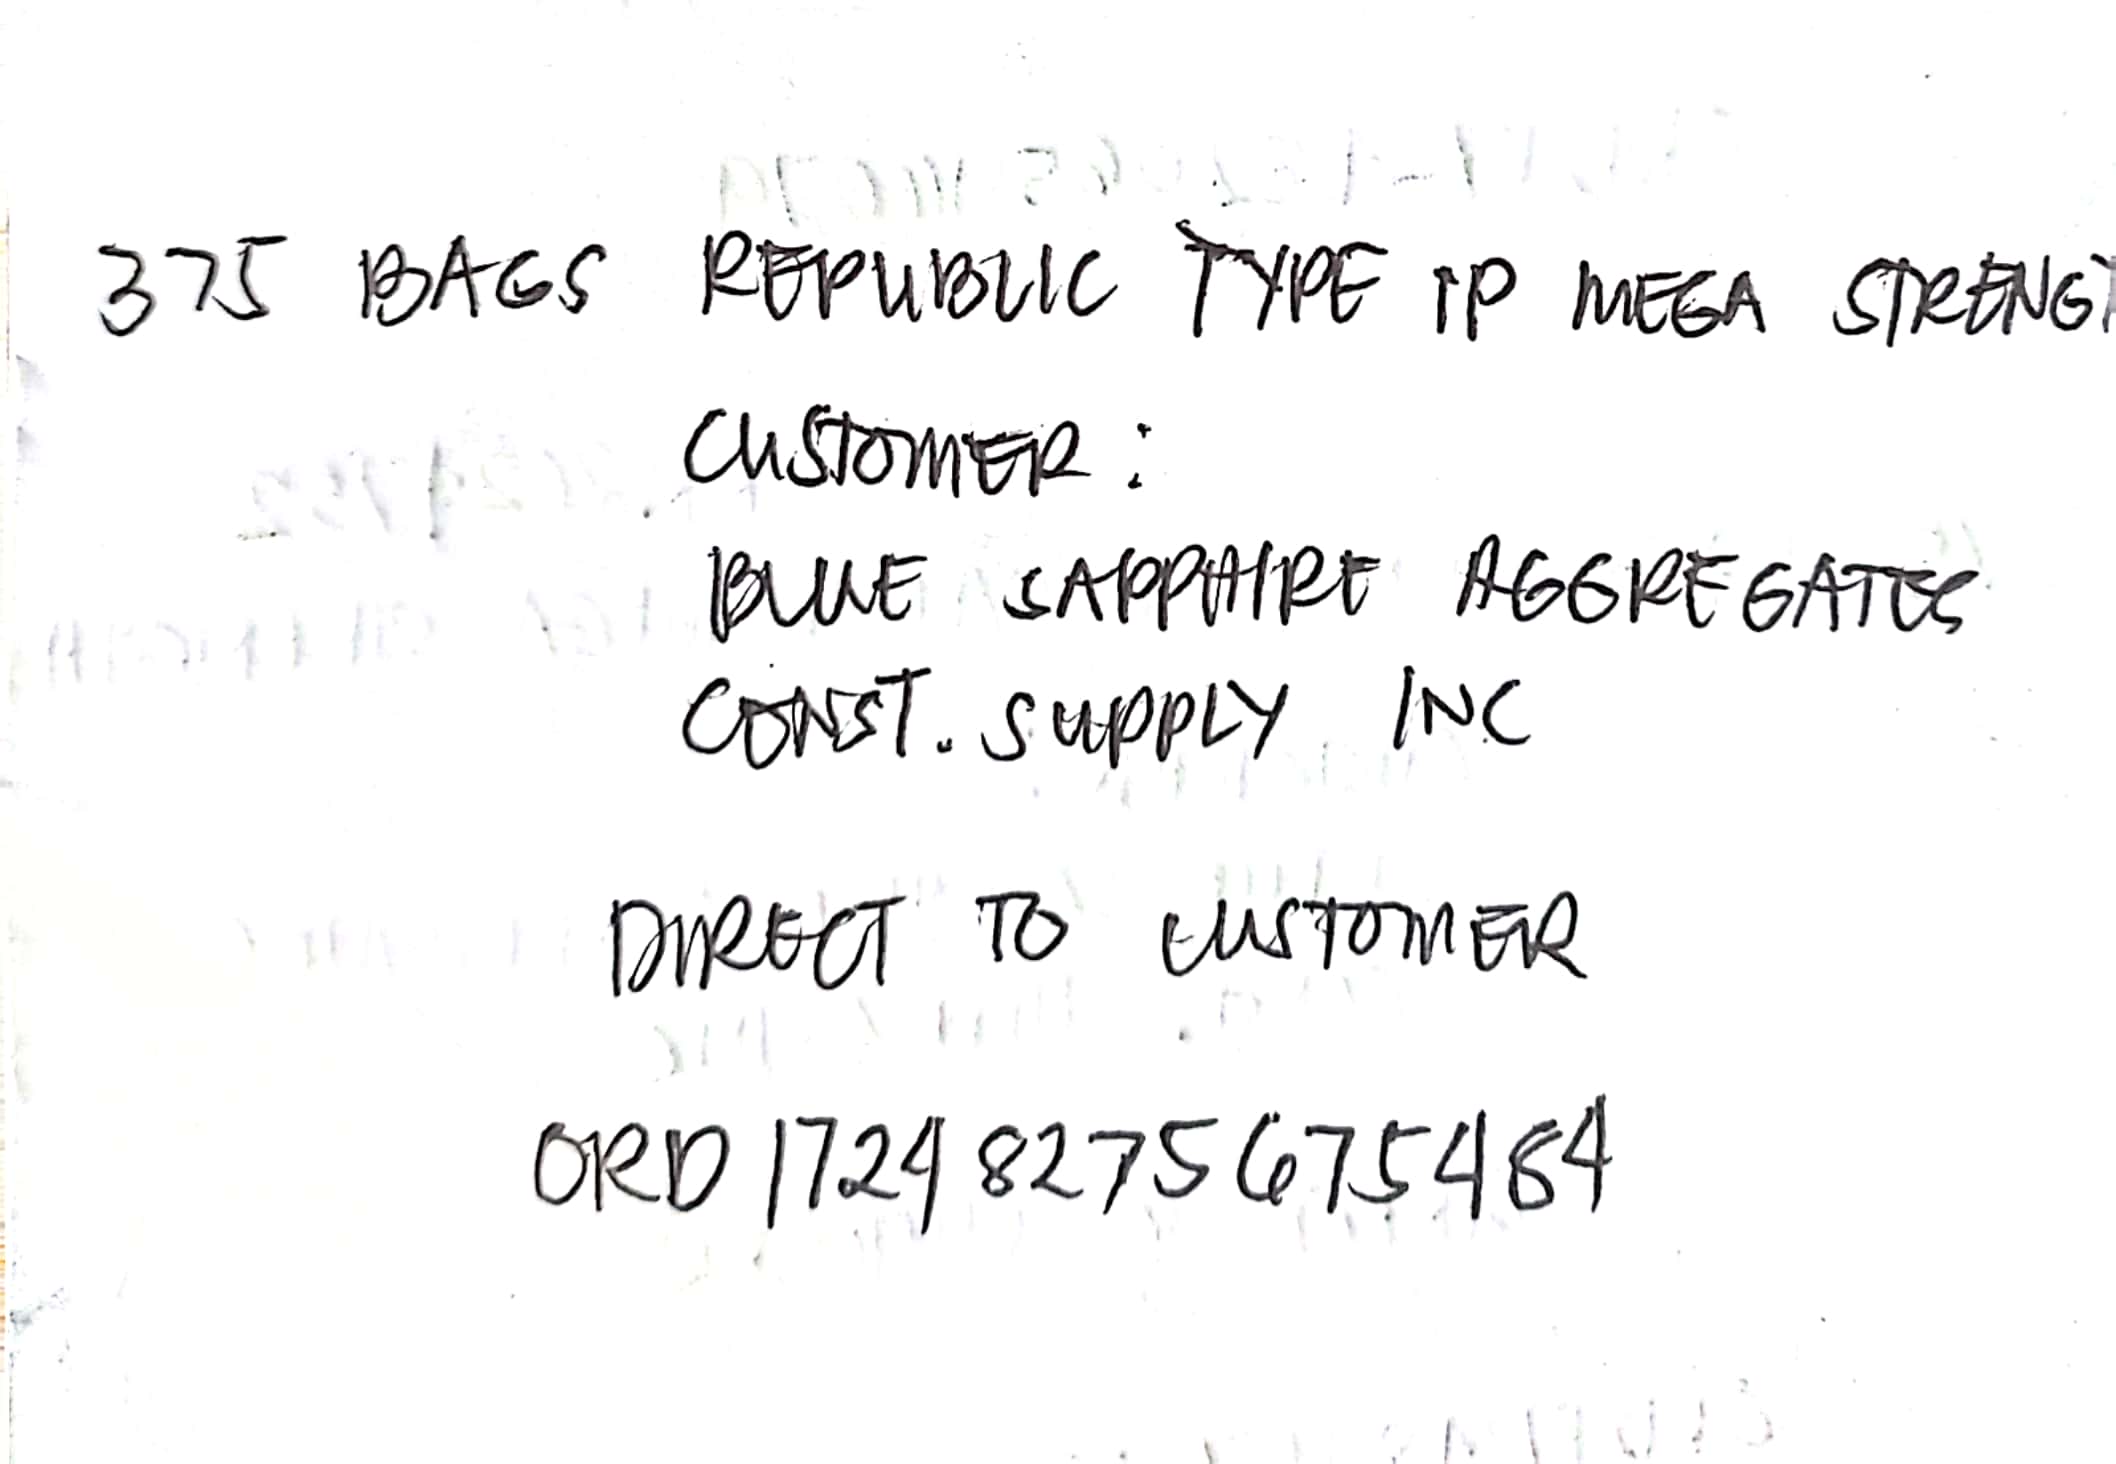 375 BAGS REPUBLIC TYPE 1P MEGA STRENGT
CUSTOMER:
BLUE SAPPHIRE AGGREGATES
CONST. SUPPLY INC
DIRECT TO CUSTOMER
ORD 17248275675484